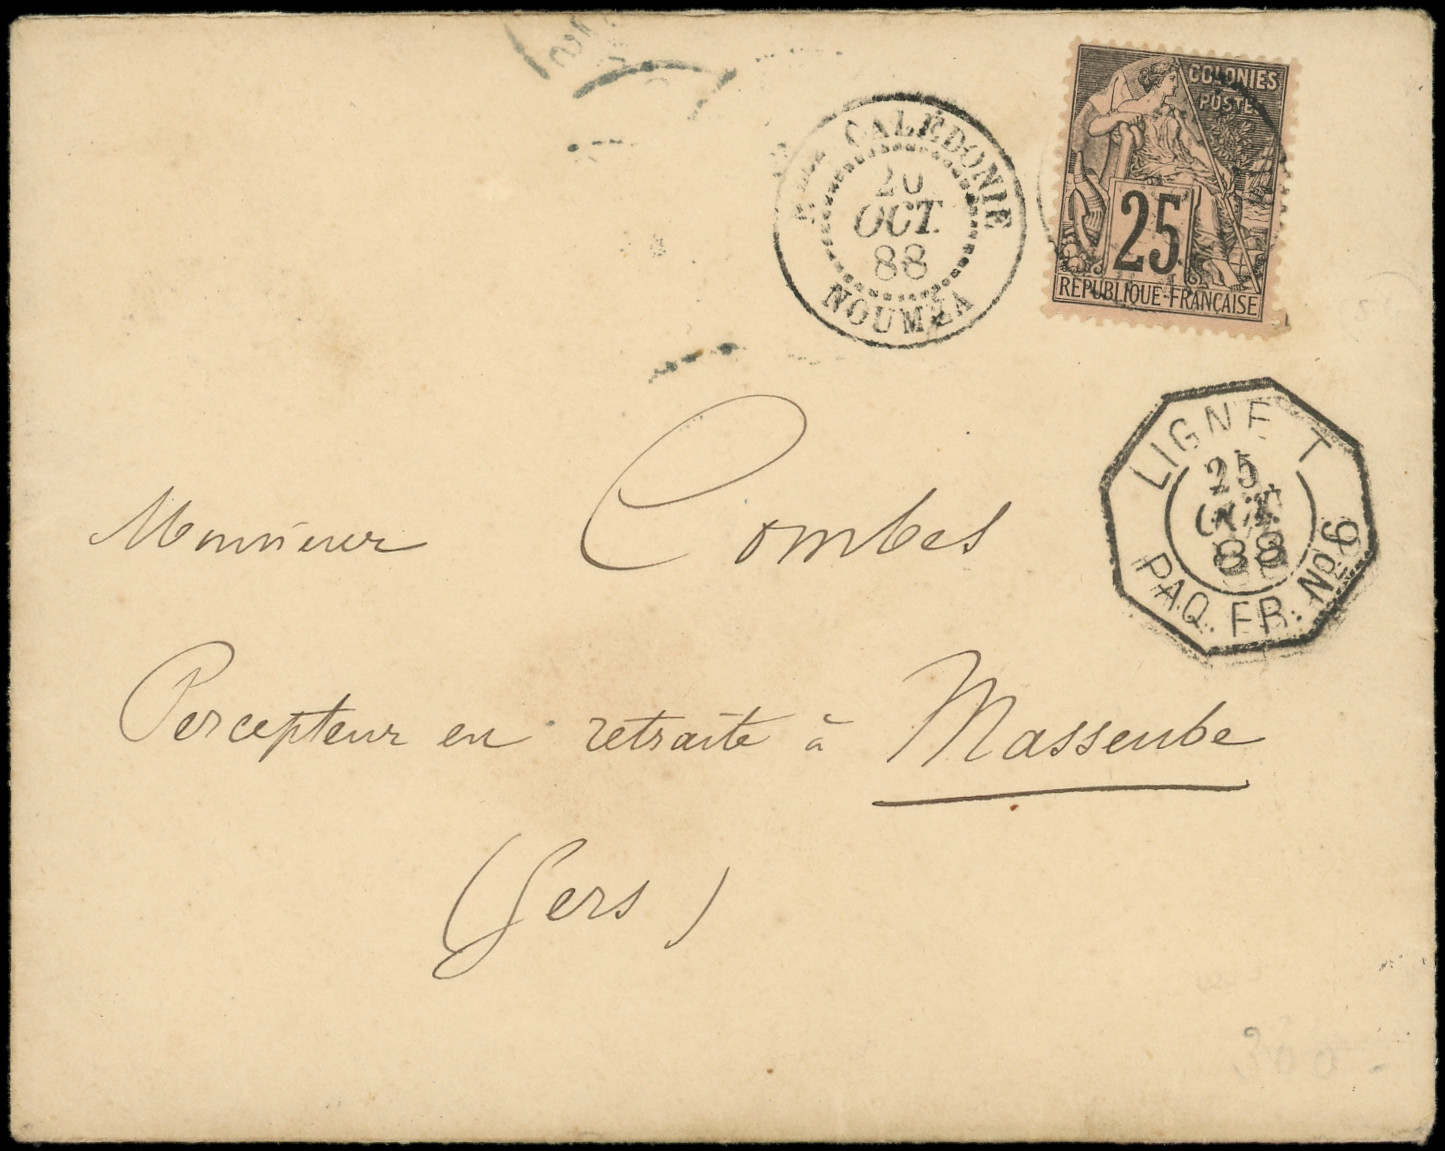 COLONIES
POSTES
25
RÉPUBLIQUE FRANÇAISE
Nlle CALÉDONIE
20
OCT.
88
NOUMÉA
LIGNE T
25
OCT.
88
PAQ. FR. No 9
Monsieur Combes
Percepteur en retraite à Masseube
(Gers)
300